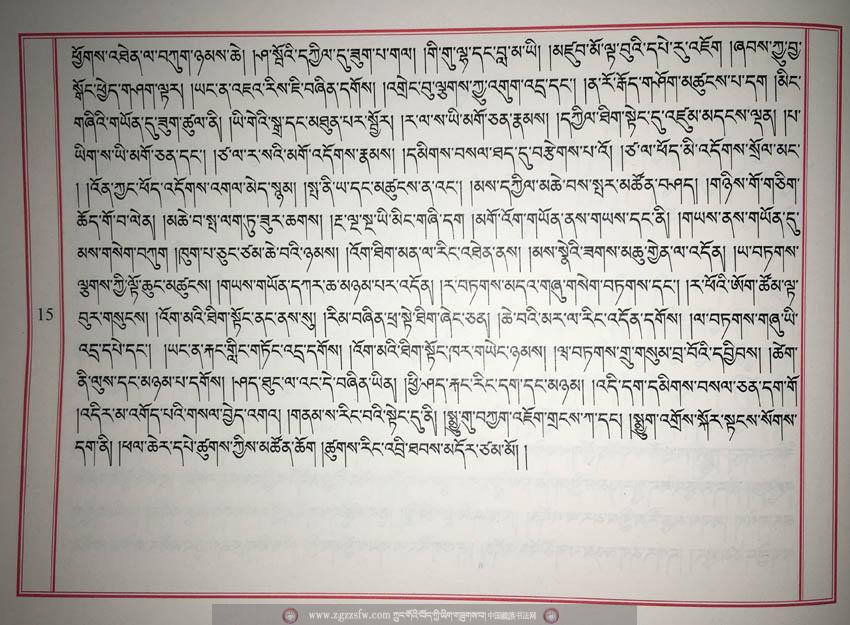 ཕྱོགས་འཐེན་ལ་བཀུག་ཉམས་ཆེ། །ཤ་སྦོའི་དཀྱིལ་དུ་ཟུག་པ་གལ། །གི་གུ་ལྷ་དང་བླ་མ་ཡི། །མཛུབ་མོ་ལྟ་བུའི་དཔེ་རུ་འཇོག །ཞབས་ཀྱུ་བྱ་
སྒོང་ཕྱེད་གཤག་ལྟར། །ཡང་ན་འཇའ་རིས་ཇི་བཞིན་དགོས། །འགྲེང་བུ་ལྕགས་ཀྱུ་འགུག་འདྲ་དང་། །ན་རོ་རྒོད་གཤོག་མཚུངས་པ་དག །མིང་
གཞིའི་གཡོན་དུ་ཟུག་ཚུལ་ནི། །ཡི་གེའི་སྒྲ་དང་མཐུན་པར་སྦྱོར། །ར་ལ་ས་ཡི་མགོ་ཅན་རྣམས། །དཀྱིལ་ཐིག་སྟེང་དུ་འཛུམ་མདངས་ལྡན། །པ་
ཡིག་ས་ཡི་མགོ་ཅན་དང་། །ཙ་ལ་ར་སའི་མགོ་འདོགས་རྣམས། །དམིགས་བསལ་ཐད་དུ་བརྩེགས་པ་འོ། །ཙ་ལ་ཕོད་མེ་འདོགས་སྲོལ་མང་
། །འོན་ཀྱང་ཕོད་འདོགས་འགལ་མེད་སྙམ། །སྤ་ནི་ཡ་དང་མཚུངས་ན་འང་། །མས་དཀྱིལ་མཆེ་བས་སྤར་མཚོན་བཤད། །གཉིས་གོ་གཅིག་
ཆོད་གོ་བ་ལེན། །མཆེ་བ་སྤ་ལག་ཏུ་ཟུར་ཆགས། །རྔ་ལྔ་སྔ་ཡི་མིང་གཞི་དག །མགོ་འོག་གཡོན་ནས་གཡས་དང་ནི། །གཡས་ནས་གཡོན་དུ་
མས་གསེག་བཀུག །ཁུག་པ་ཅུང་ཙམ་ཆེ་བའི་ཉམས། །འོག་ཐིག་མན་ལ་རིང་འཐེན་ནས། །མས་སྣེའི་ཟགས་མཆུ་གྱེན་ལ་འདོན། །ཡ་བཏགས་
ལྕགས་ཀྱི་ལྟོ་ཆུང་མཚུངས། །གཡས་གཡོན་དཀར་ཆ་མཉམ་པར་འདོན། །ར་བཏགས་མདའ་གཞུ་གསེག་བཏགས་དང་། །ར་ཕོའི་ཨོག་ཚོམ་ལྟ་
བུར་གསུངས། །འོག་མའི་ཐིག་སྟོང་ནང་ནས་སུ། །རིམ་བཞིན་ཕྲ་སྟེ་ཐིག་ཞེང་ཅན། །ཆེ་བའི་མར་ལ་རིང་འདོན་དགོས། །ལ་བཏགས་གཞུ་ཡི་
འདྲ་དཔེ་དང་། །ཡང་ན་རྐང་གླིང་གཏོང་འདྲ་དགོས། །འོག་མའི་ཐིག་སྟོང་ཁར་གཡེང་ཉམས། །ཝ་བཏགས་གྲུ་གསུམ་བྲ་བོའི་དབྱིབས། །ཚེག་
ནི་ལུས་དང་མཉམ་པ་དགོས། །ཤད་ཐུང་ལ་འང་དེ་བཞིན་ཡིན། །ཕྱི་ཤད་རྐང་རིང་དག་དང་མཉམ། །འདི་དག་དམིགས་བསལ་ཅན་དག་གོ
།འདིར་མ་འགོད་པའི་གསལ་བྱེད་འགའ། །གནམ་ས་རིང་བའི་སྟེང་དུ་ནི། །སྨྱུ་གུ་བཀྱག་འཇོག་གྲངས་ཀ་དང་། །སྨྱུག་འགྲོས་སྐོར་སྟངས་སོགས་
དག་ནི། །ཕལ་ཆེར་དཔེ་ཚུགས་ཀྱིས་མཚོན་ཆོག །ཚུགས་རིང་འབྲི་ཐབས་མདོར་ཙམ་མོ། །
15
www.zgzzsfw.com ཀྲུང་གོའི་བོད་ཀྱི་ཡིག་གཟུགས་དྲ། 中国藏族书法网